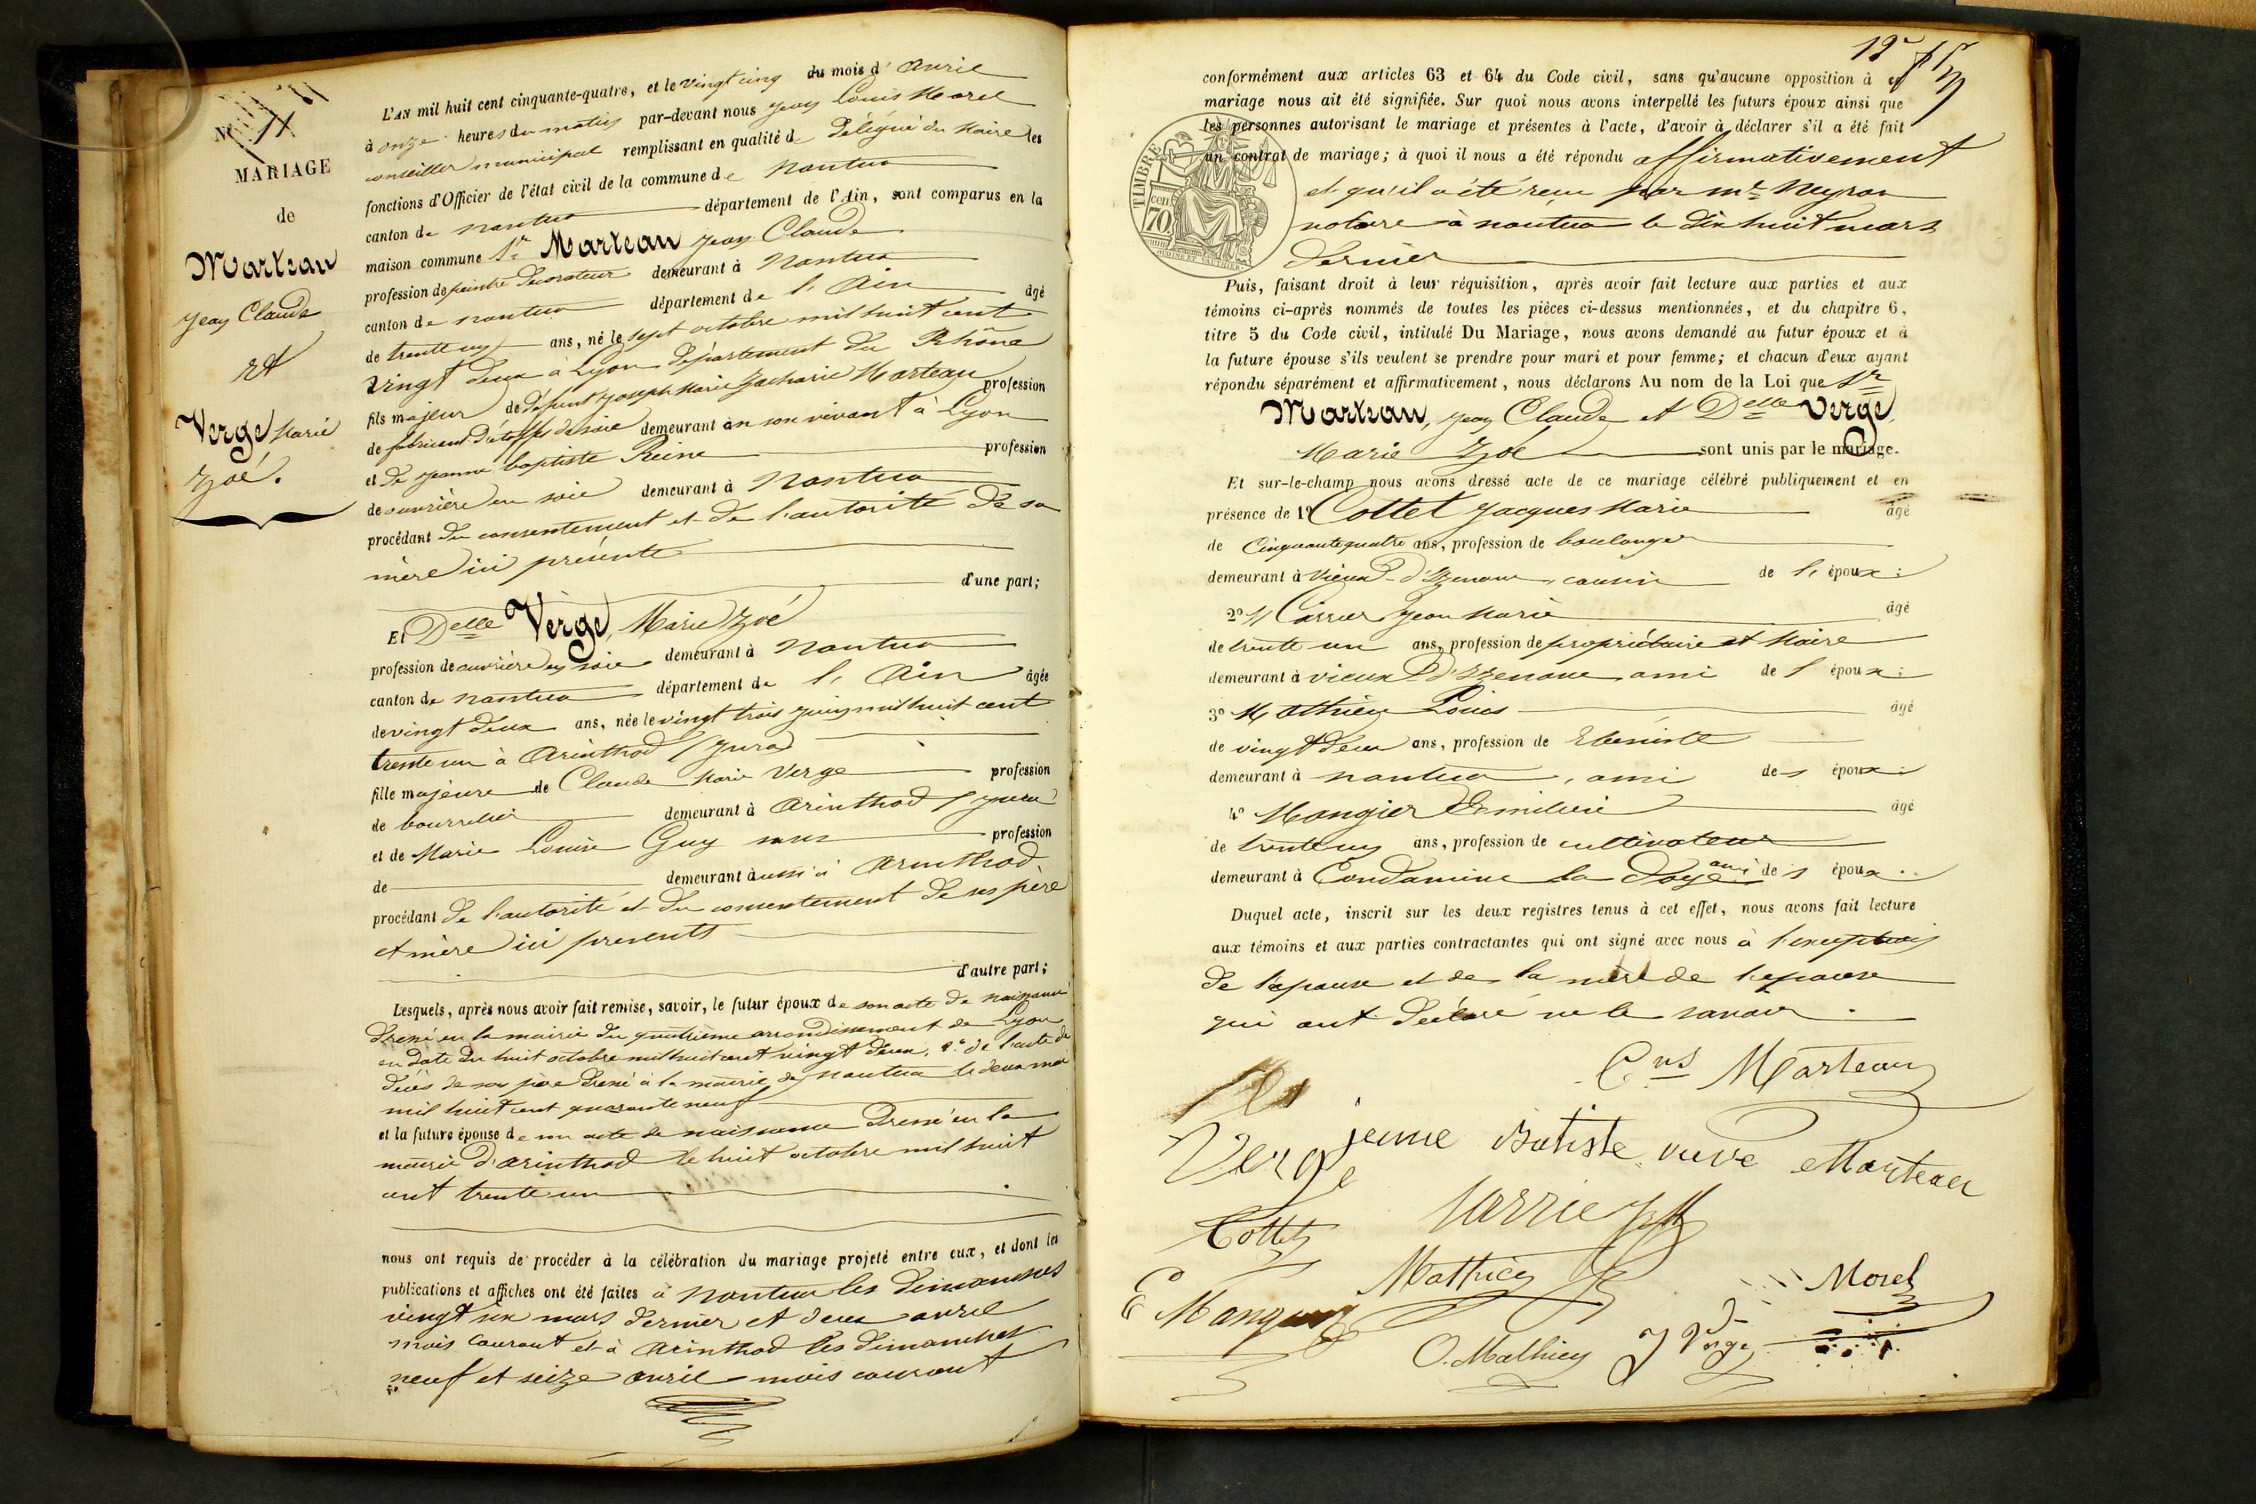 N° 11
MARIAGE
de
Marteau
Jean Claude
et
Verge Marie
Zoé.
L'AN mil huit cent cinquante-quatre, et le vingt cinq du mois d'avril
à onze heures du matin par-devant nous Jean Louis Morel
conseiller municipal remplissant en qualité de délégué du Maire les
fonctions d'Officier de l'état civil de la commune de Nantua
canton de nantua département de l'Ain, sont comparus en la
maison commune Sr Marteau Jean Claude
profession de peintre décorateur demeurant à Nantua
canton de nantua département de l'Ain âgé
de trente un ans, né le sept octobre mil huit cent
vingt deux à Lyon département du Rhône
fils majeur de défunt Joseph Marie Zacharie Marteau profession
de fabricant d'étoffes de soie demeurant en son vivant à Lyon
et de Jeanne baptiste Reine profession
de ouvrière en soie demeurant à Nantua
procédant du consentement et de l'autorité de sa
mère ici présente
d'une part;
Et Delle Verge, Marie Zoé
profession de ouvrière en soie demeurant à Nantua
canton de nantua département de l'Ain âgée
de vingt deux ans, née le vingt trois juin mil huit cent
trente un à Arinthod (Jura)
fille majeure de Claude Marie Verge profession
de bourrelier demeurant à Arinthod (Jura)
et de Marie Louise Guy sans profession
de demeurant aussi à Arinthod
procédant de l'autorité et du consentement de ses père
et mère ici presents
d'autre part;
Lesquels, après nous avoir fait remise, savoir, le futur époux de son acte de naissance
dressé en la mairie du quatrième arrondissement de Lyon
en date du huit octobre mil huit cent vingt deux, 2° de l'acte de
décès de son père dressé à la mairie de Nantua le deux mai
mil huit cent quarante neuf
et la future épouse de son acte de naissance dressé en la
mairie d'Arinthod le huit octobre mil huit
cent trente un
nous ont requis de procéder à la célébration du mariage projeté entre eux, et dont les
publications et affiches ont été faites à Nantua les dimanches
vingt six mars dernier et deux avril
mois courant et à Arinthod les dimanches
neuf et seize avril mois courant
12
conformément aux articles 63 et 64 du Code civil, sans qu'aucune opposition à ce
mariage nous ait été signifiée. Sur quoi nous avons interpellé les futurs époux ainsi que
les personnes autorisant le mariage et présentes à l'acte, d'avoir à déclarer s'il a été fait
un contrat de mariage; à quoi il nous a été répondu affirmativement
et qu'il a été reçu par Me Neyron
notaire à nantua le dix huit mars
dernier
TIMBRE
70 cen
Puis, faisant droit à leur réquisition, après avoir fait lecture aux parties et aux
témoins ci-après nommés de toutes les pièces ci-dessus mentionnées, et du chapitre 6,
titre 5 du Code civil, intitulé Du Mariage, nous avons demandé au futur époux et à
la future épouse s'ils veulent se prendre pour mari et pour femme; et chacun d'eux ayant
répondu séparément et affirmativement, nous déclarons Au nom de la Loi que Sr
Marteau, Jean Claude et Delle Verge,
Marie Zoé sont unis par le mariage.
Et sur-le-champ nous avons dressé acte de ce mariage célébré publiquement et en
présence de 1° Cottet Jacques Marie âgé
de Cinquante quatre ans, profession de boulanger
demeurant à Vieux d'Izenave, cousin de l'époux:
2° Carrier Jean Marie âgé
de trente un ans, profession de propriétaire et Maire
demeurant à vieux d'Izenave ami de l'époux:
3° Mathieu Louis âgé
de vingt deux ans, profession de Ebéniste
demeurant à nantua, ami des époux:
4° Mangier Emilien âgé
de trente un ans, profession de cultivateur
demeurant à Condamine la doye ami des époux.
Duquel acte, inscrit sur les deux registres tenus à cet effet, nous avons fait lecture
aux témoins et aux parties contractantes qui ont signé avec nous à l'exception
de l'épouse et de la mère de l'épouse
qui ont déclaré ne le savoir.
Marteau
Verge
jenne Batiste veuve Marteau
Cottet
Mathieu
Morel
O. Mathieu
J Verge